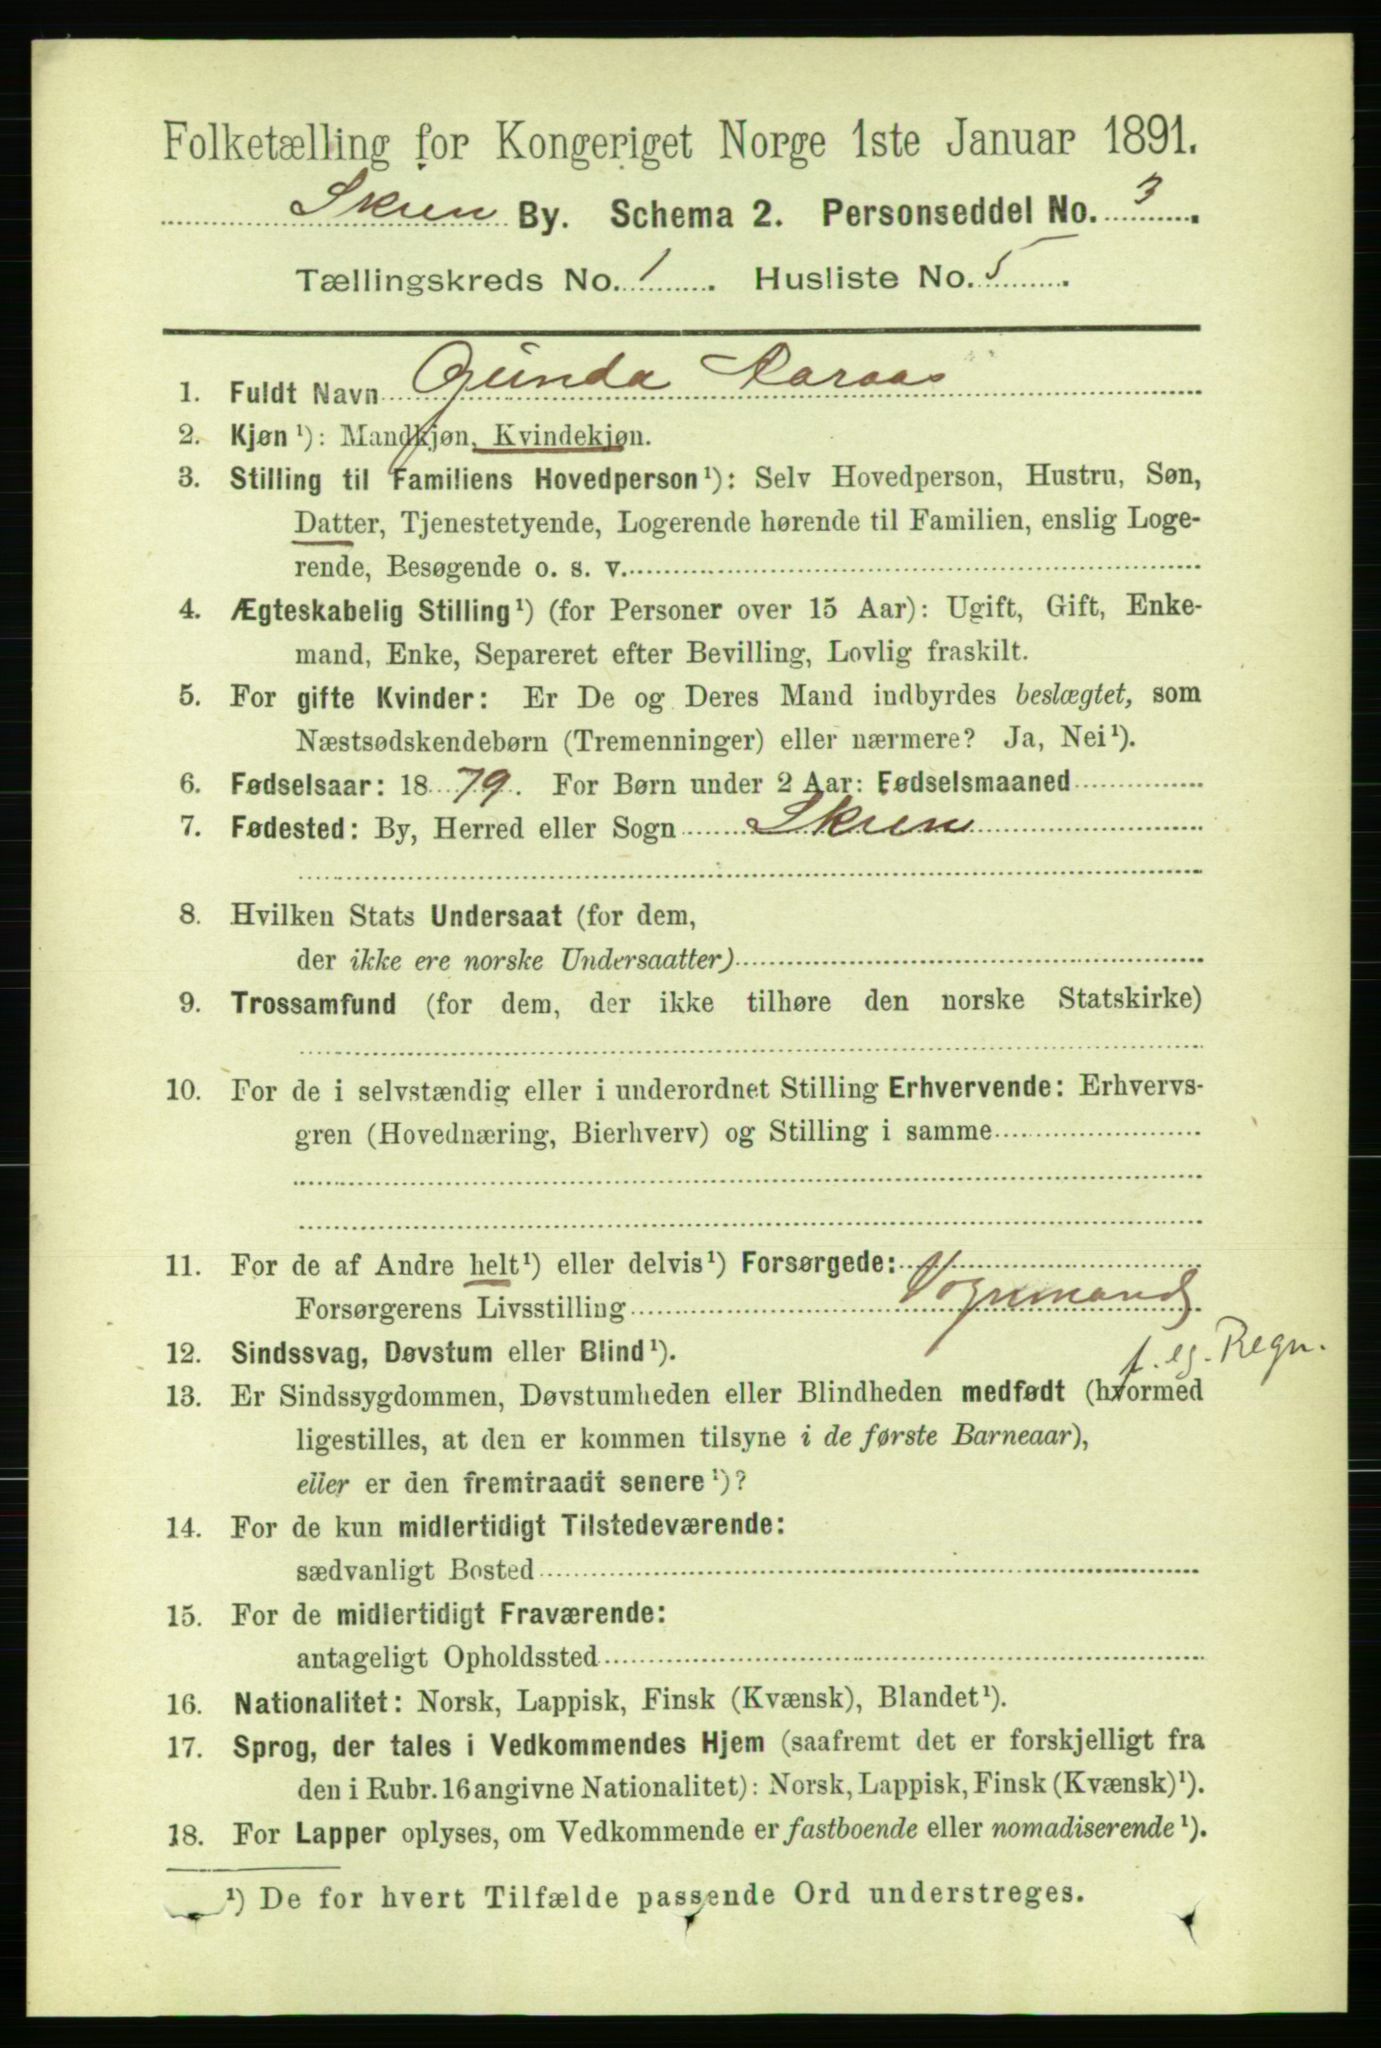 Folketælling for Kongeriget Norge 1ste Januar 1891.
Skien By. Schema 2. Personseddel No. 3.
Tællingskreds No. 1. Husliste No. 5.
1. Fuldt Navn Gunda Aaraas
2. Kjøn¹): Mandkjøn, Kvindekjøn.
3. Stilling til Familiens Hovedperson¹): Selv Hovedperson, Hustru, Søn,
Datter, Tjenestetyende, Logerende hørende til Familien, enslig Loge-
rende, Besøgende o. s. v.
4. Ægteskabelig Stilling¹) (for Personer over 15 Aar): Ugift, Gift, Enke-
mand, Enke, Separeret efter Bevilling, Lovlig fraskilt.
5. For gifte Kvinder: Er De og Deres Mand indbyrdes beslægtet, som
Næstsødskendebørn (Tremenninger) eller nærmere? Ja, Nei¹).
6. Fødselsaar: 1879. For Børn under 2 Aar: Fødselsmaaned
7. Fødested: By, Herred eller Sogn Skien
8. Hvilken Stats Undersaat (for dem,
der ikke ere norske Undersaatter)
9. Trossamfund (for dem, der ikke tilhøre den norske Statskirke)
10. For de i selvstændig eller i underordnet Stilling Erhvervende: Erhvervs-
gren (Hovednæring, Bierhverv) og Stilling i samme
11. For de af Andre helt¹) eller delvis¹) Forsørgede:
Forsørgerens Livsstilling Vognmand
f. eg. Regn.
12. Sindssvag, Døvstum eller Blind¹).
13. Er Sindssygdommen, Døvstumheden eller Blindheden medfødt (hvormed
ligestilles, at den er kommen tilsyne i de første Barneaar),
eller er den fremtraadt senere¹)?
14. For de kun midlertidigt Tilstedeværende:
sædvanligt Bosted
15. For de midlertidigt Fraværende:
antageligt Opholdssted
16. Nationalitet: Norsk, Lappisk, Finsk (Kvænsk), Blandet¹).
17. Sprog, der tales i Vedkommendes Hjem (saafremt det er forskjelligt fra
den i Rubr. 16 angivne Nationalitet): Norsk, Lappisk, Finsk (Kvænsk)¹).
18. For Lapper oplyses, om Vedkommende er fastboende eller nomadiserende¹).
¹) De for hvert Tilfælde passende Ord understreges.